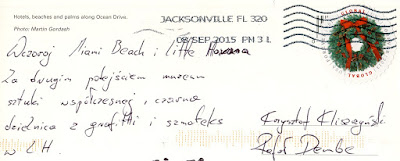 Hotels, beaches and palms along Ocean Drive.
Photo: Martin Gordash
JACKSONVILLE FL 320
08 SEP 2015 PM 3 L
GLOBAL
Wczoraj Miami Beach i Little Havana
Za drugim podejściem muzeum
sztuki współczesnej, czarna
dzielnica z graffiti i
w LH.
Krzysztof Kliszczyński
Rafał Dembe